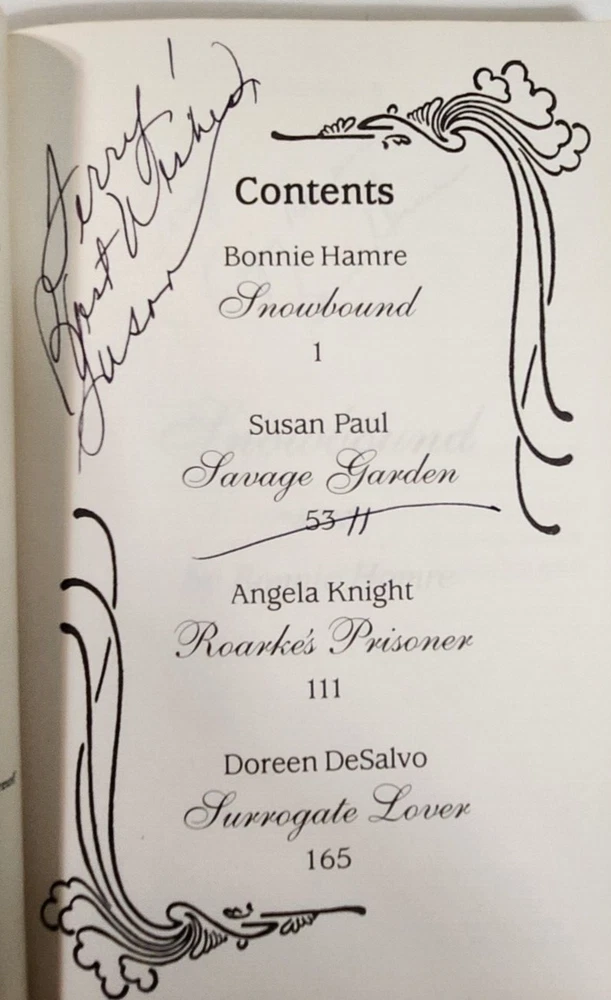 Terry!
Best Wishes,
Susan
Contents
Bonnie Hamre
Snowbound
1
Susan Paul
Savage Garden
53
Angela Knight
Roarke's Prisoner
111
Doreen DeSalvo
Surrogate Lover
165